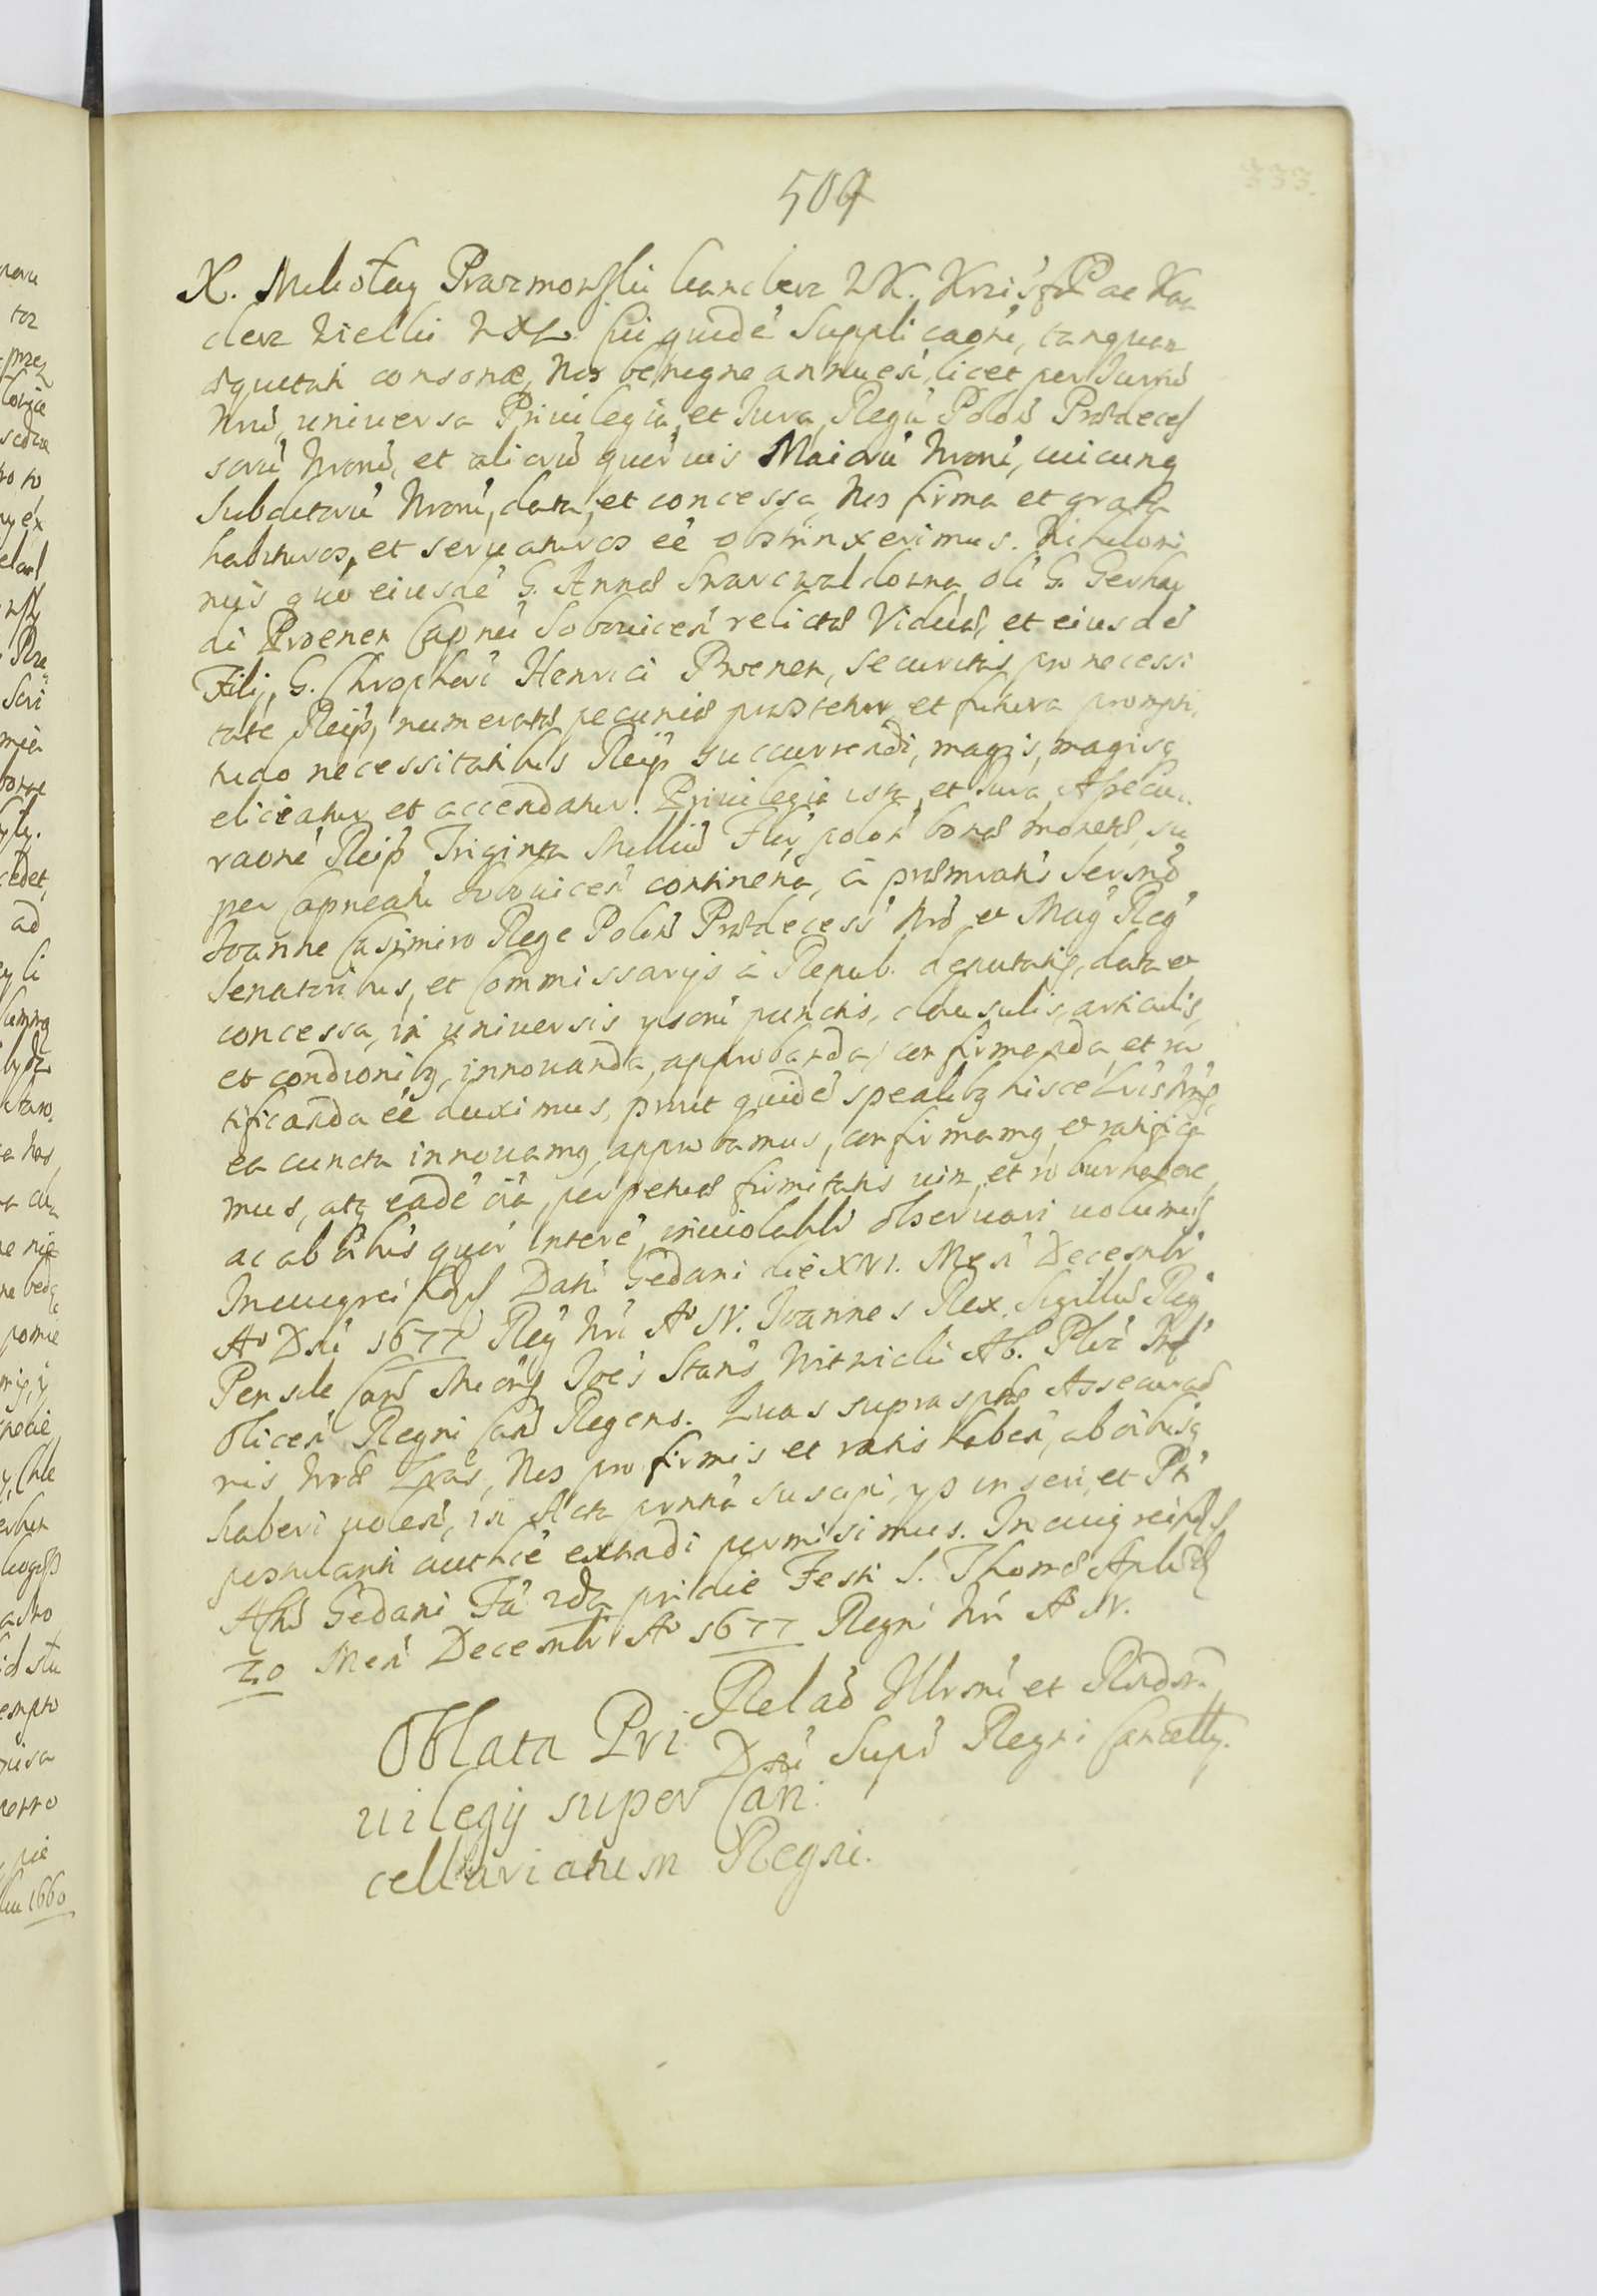 509
333.
X. Mikołay Prazmowski Kanclerz WK. Krzisstof Pac Kan
clerz Wielki WXL. Cui quidē Supplicaoni, tanquam
æquitati consonæ, Nos benigne annuen, licet per Iuram
Nrm, universa Privilegia, et Iura, Regū Poloæ Prædeces
sorū Nronū, et aliorū quorvis Maiorū Nronū, cuicunq
Subditorū Nronū, data, et concessa, Nos firma et grata
habituros, et servaturos eē obstrinxerimus. Nihilomi
nus quo eiusdē G. Annæ Szwarcwaldowna, oli G. Gerhar
di Proenen Capnei Sobouicen relictæ Viduæ, et eiusdē
Filij, G. Chrophori Henrici Proenen, securitas pro necessi
tate Reip, numeratæ pecuniæ præstetur et futura prompti,
tudo necessitatibus Reip succurrendi, magis, magisq
eliceatur et accendatur. Privilegia ista, et Iura, Assecu..
raone Reip Triginta Milliū Flor polon bonæ monetæ, su
per Capneatu Sobouicen continena, â præmrato Sermo
Ioanne Casimiro Rege Polon Prædecess Nro et Mag Reg
Senatoribus, et Commissarijs â Repub. deputatis, data et
concessa, in universis ysorū punctis, clausulis, articulis,
et condionibq, innouanda, approbanda, confirmanda, et ra
tificanda eē duximus, prout quidē spealibq hisce Lris Nris,
ea cuncta innouamq, approbamus, confirmamq, et ratifica
mus, atq eadē oia, perpetuæ firmitatis uim, et robur habere,
ac ab oibus quor interē, inviolablr observari volumus
In cuiqrei fidem Dat Gedani die XVI. Men Decembr
Ao Dni 1677 Reg Nri Ao IV. Ioannes Rex. Sigillū Reg
Pensile Can Mioris Ioēs Stans Witwicki Ab. Ploc
Olicen Regni Can Regens. Quas supra sptas Assecurao
nis Nroæ Lras, Nos pro firmis et ratis haben, ab oibusq
haberi volen, in Acta prnna suscipi, yp inseri, et Pti
postulanti auth̄ce extradi permisimus. In cuiq rei fidem
Act Gedani Fa 2da pridie Festi S. Thomæ Apli
20 Men Decembr Ao 1677 Regni Nri Ao IV.
Relao Illrmi et Rndmi
Dni Supr Regni Cancelly.
Oblata Pri
uilegij super Can:
cellariatum Regni.